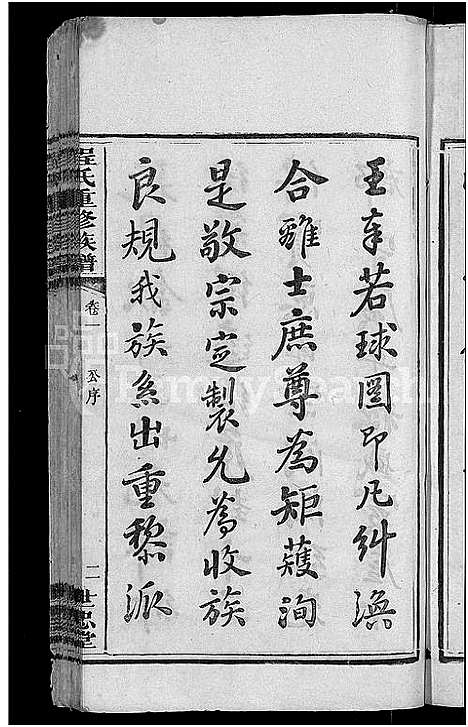 王奉若球圖即凡糾渙
合離士庶尊為矩矱洵
是敬宗定製允為收族
良規我族系出重黎派
程氏重修族譜
卷一
公序
二
世忠堂
FamilySearch